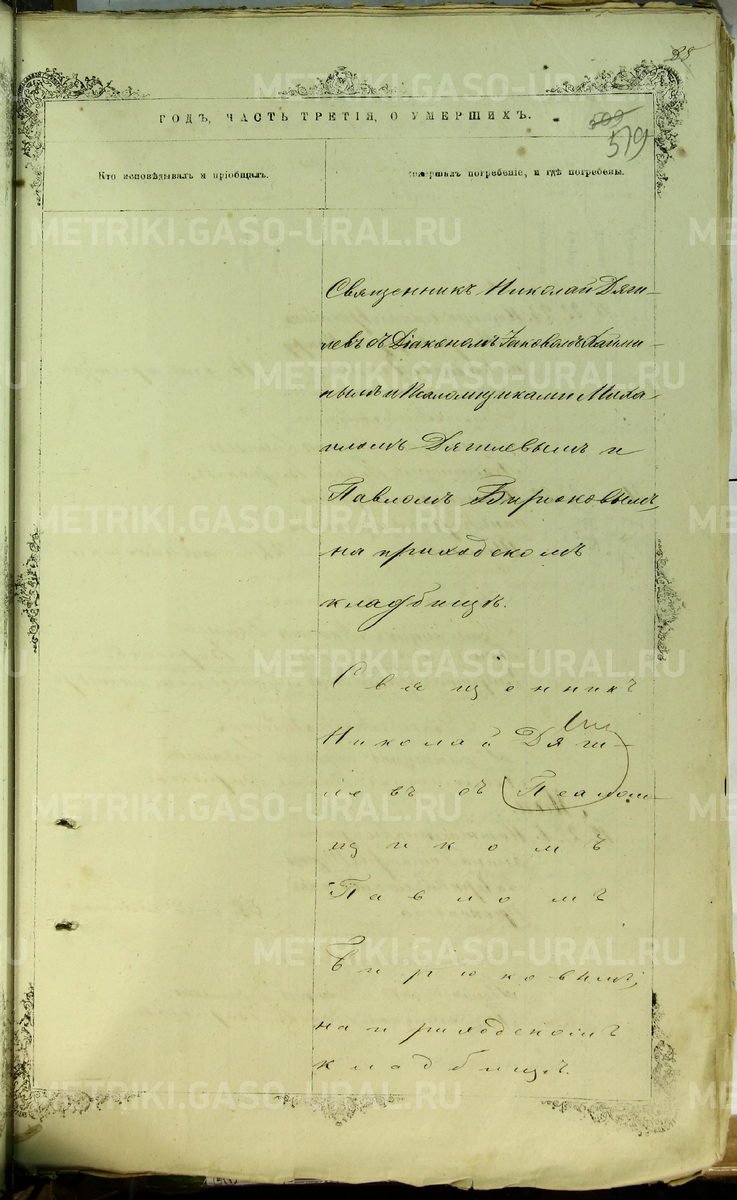 38
ГОДЪ, ЧАСТЬ ТРЕТІЯ, О УМЕРШИХЪ.
599
519
Кто исповѣдывалъ и пріобщалъ.
совершалъ погребеніе, и гдѣ погребены.
Священникъ Николай Дяги-
левъ съ Діакономъ
нымъ и Псаломщиками Миха-
иломъ Дягилевымъ и
Павломъ Бирюковымъ,
на приходскомъ
кладбищѣ.
Священникъ
Николай Дяги-
левъ съ Псалом-
щикомъ
Павломъ
Бирюковымъ,
на приходскомъ
кладбищѣ.
METRIKI.GASO-URAL.RU